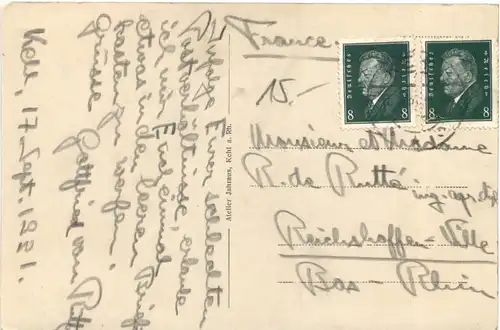 Kehl, 17. Sept. 1931.
Infolge Eurer schlechten
Postverhältnisse, erlaube
ich mir Euch einmal
etwas in den leeren Brief-
kasten zu werfen!
Grüsse Gottfried von
Atelier Jahraus, Kehl a. Rh.
France
15.-
Deutsches Reich
8 8
Deutsches Reich
8 8
Monsieur et Madame
R. de Rutté ing. agr. dipl
Reichshoffen-Ville
Bas-Rhin